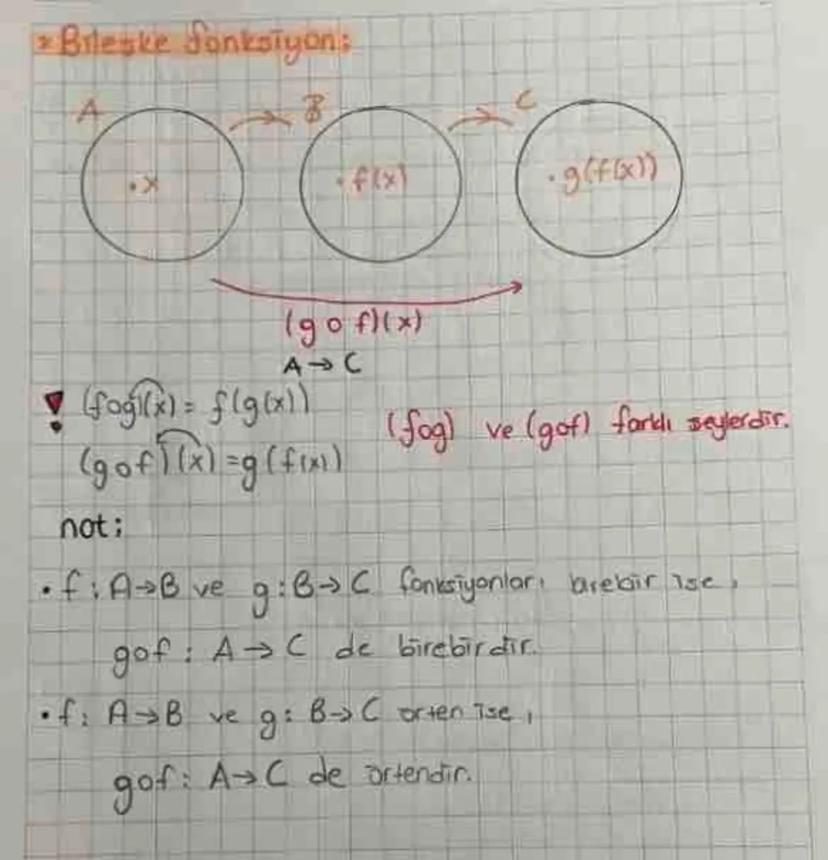 * Bileşke fonksiyon:
A B C
• x • f(x) • g(f(x))
(g o f)(x)
A → C
! (fog)(x) = f(g(x))
(fog) ve (gof) farklı şeylerdir.
(gof)(x) = g(f(x))
not:
• f: A→B ve g: B→C fonksiyonları birebir ise,
gof: A → C de birebirdir.
• f: A→B ve g: B→C örten ise,
gof: A→C de örtendir.